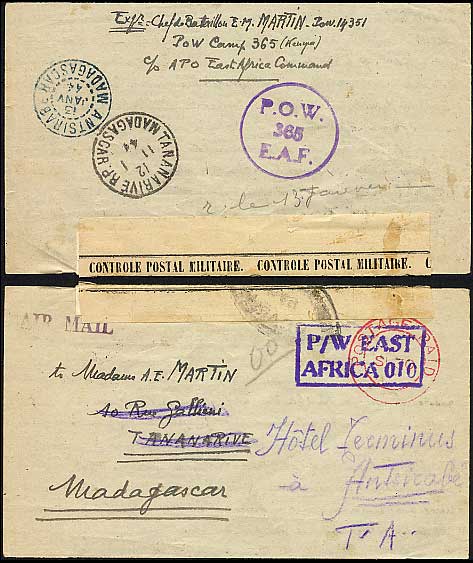 Expr - Chef de Bataillon E.M. MARTIN. Pow. 14351
Pow Camp 365 (Kenya)
c/o APO East Africa Command
ANTSIRABE
13
JANV
44
MADAGASCAR
TANANARIVE R.P.
12 - 1
11
44
MADAGASCAR
P.O.W.
365
E.A.F.
r. le 13 Janvier
CONTROLE POSTAL MILITAIRE. CONTROLE POSTAL MILITAIRE. C
AIR MAIL
P/W EAST
AFRICA 010
POSTAGE PAID
to Madame A.E. MARTIN
10 Rue Gallieni
TANANARIVE
Madagascar
Hôtel Terminus
à Antsirabe